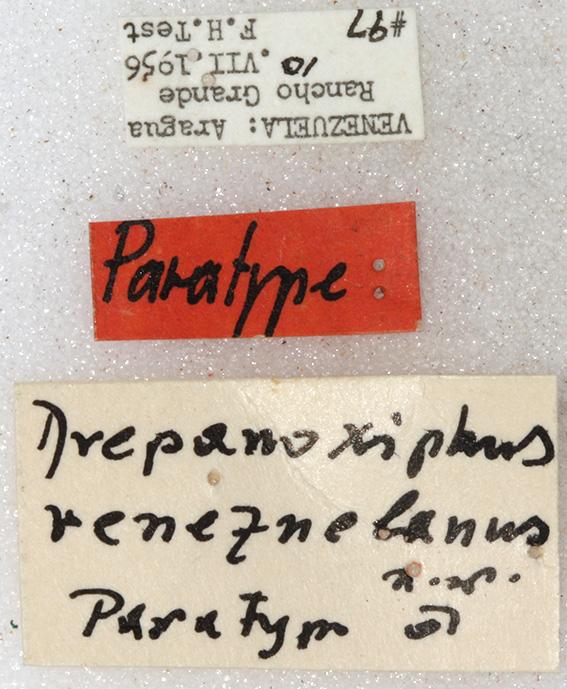 VENEZUELA: Aragua
Rancho Grande
10.VII.1956
F.H.Test #97
Paratype:
Drepanoxiphus
venezuelanus
Paratyp ♂